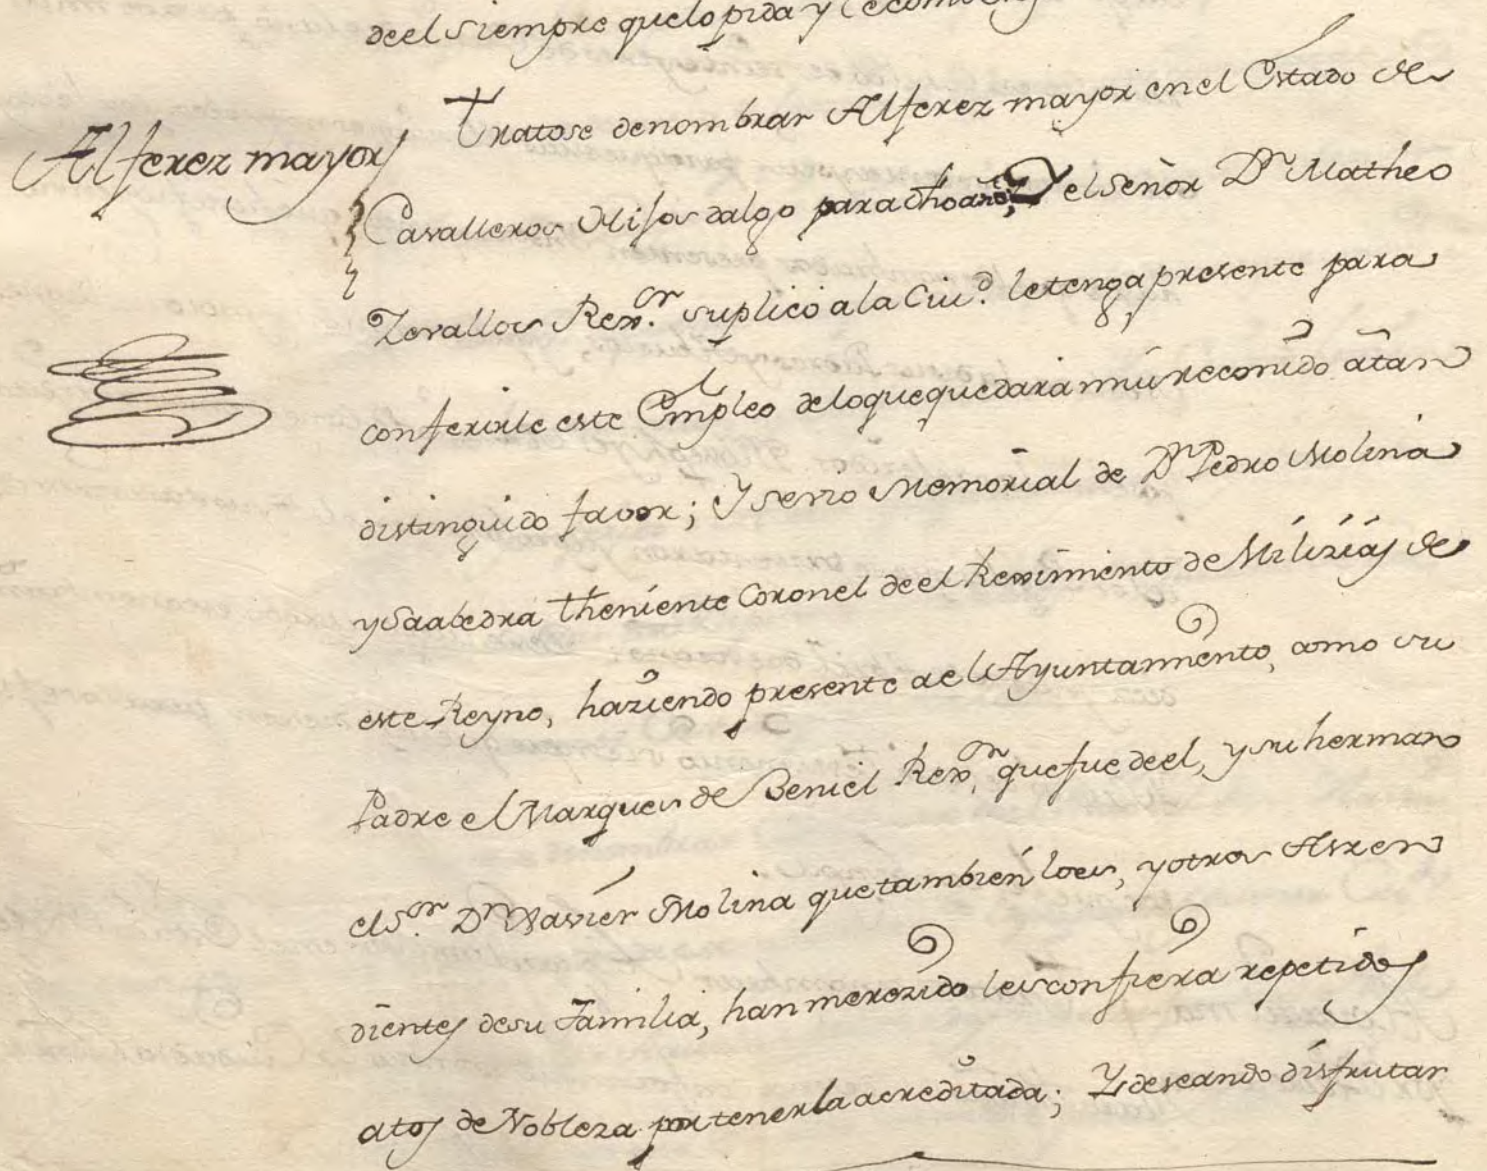 deel siempre quelo pida y
Tratose denombrar Alferez mayor en el Estado de
Alferez mayor
Cavalleros Hijos dalgo para dho año; Y el Señor Dn Matheo
Zevallos Rexor. suplicó a la Ciud. letenga presente para
conferirle este Empleo deloque quedara mui reconido â tan
distinguido favor; Y se vio Memorial de Dn Pedro Molina
y Saabedra theniente Coronel de el Reximiento de Milizias de
este Reyno, haziendo presente a el Ayuntamiento, como su
Padre el Marques de Beniel Rexor, que fue deel, y su hermano
el Sor. Dn Xavier Molina que tambien loes, y otros Aszen
dientes desu Familia, han merezido les confiera repetidos
atos de Nobleza por tenerla acreditada; Y deseando disfrutar